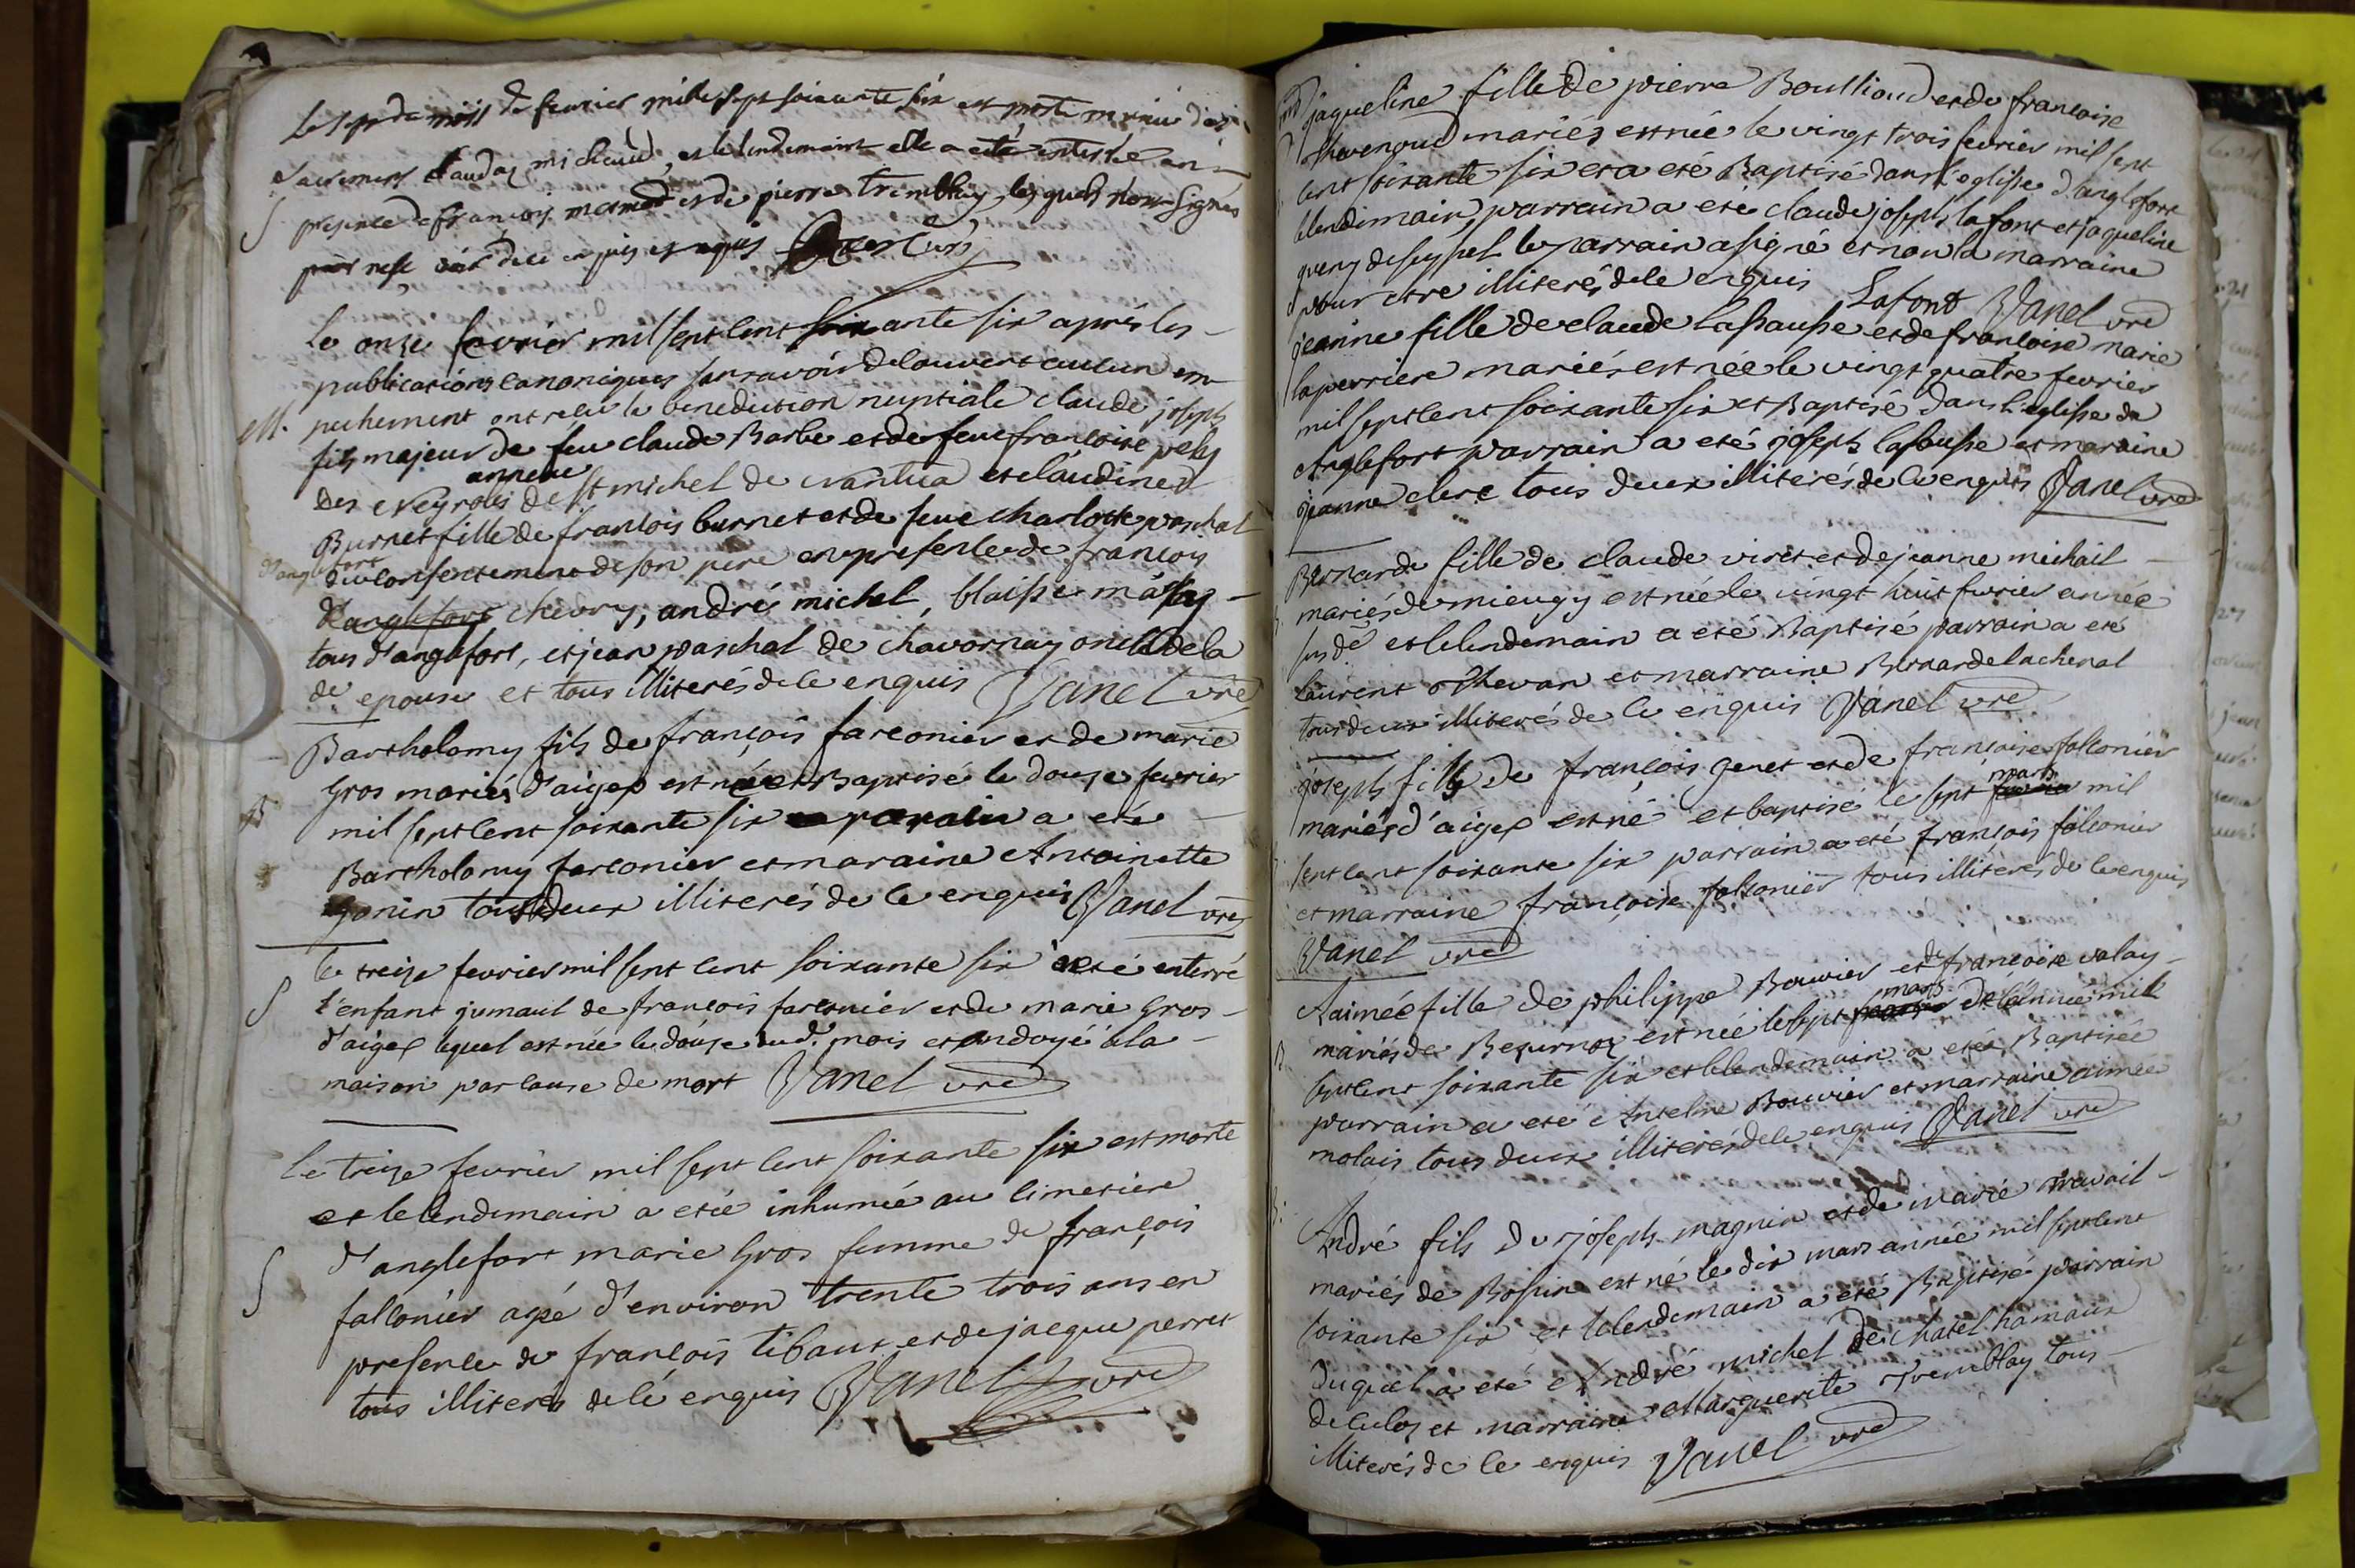 Le sept du mois de fevrier mille sept soixante six est morte munie des
sacremens claudaz michaud, et le lendemaint elle a eté enterrée en
S presence de françois et de pierre tremblay, les quels n'ont signés
pour de ce enquis et requis
Le onze fevrier mil sept cent soixante six après les
publications canoniques sans avoir decouvert aucun em
M. pechement ont reçu la benediction nuptiale claude joseph
fils majeur de feu claude Barbe et de feue francoise peley
annexe
des Neyrolis de St michel de nantua et claudine
Burnet fille de francois burnet et de feue charlotte paschal
d'anglefort
du consentement de son pere en presence de francois
d'anglefort chevry, andré michel, blaise
tous d'anglefort, et jean paschal de chavornay oncle de la
de epouse et tous illiterés de ce enquis Vanel vre
Bartholomy fils de françois farconier et de marie
gros mariés d'aiges est né et Baptisé le douze fevrier
B mil sept cent soixante six parain a eté
Bartholomy farconier et maraine Antoinette
gonin tous deux illiterés de ce enquis Vanel vre
le treize fevrier mil sept cent soixante six a eté enterré
S l'enfant jumaul de francois farconier et de marie gros
d'aiges lequel est née le douze dud. mois et ondoyé a la
maison par cause de mort Vanel vre
Le treize fevrier mil sept cent soixante six est morte
et le lendemain a eté inhumée au cimetiere
d'anglefort marie Gros femme de françois
S falconier agée d'environ trente trois ans en
presence de francois tibaut et de jacque perret
tous illiterés de cé enquis Vanel vre
jaqueline fille de pierre Boullioud et de francoise
thevenoud mariés est née le vingt trois fevrier mil sept
cent soixante six et a eté Baptisé dans l'eglisse d'anglefort
lendimain, parrain a eté claude joseph lafont et jaqueline
de seyssel le parrain a signé et non la marraine
pour etre illiterés de ce enquis Lafont Vanel vre
jeanne fille de claude Lassausse et de françoise marie
laperriere mariés est née le vingt quatre fevrier
mil sept cent soixante six et Baptisé dans l'eglisse de
Anglefort parrain a eté joseph lasausse et maraine
jeanne clerc tous deux illiterés de ce enquis Vanel vre
Bernarde fille de claude viret et de jeanne michail
mariés de mieugy est née le vingt huit fevrier année
susde et le lendemain a eté Baptisé parrain a eté
Laurent thevan et marraine Bernarde lachenal
tous deux illiterés de ce enquis Vanel vre
joseph fils de françois genet et de françoise falconier
mars
mariés d'aiges est né et baptisé le sept fevrier mil
sept cent soixante six parrain a eté françois falconier
et marraine françoise falconier tous illiterés de ce enquis
Vanel vre
Aimée fille de philippe Bouvier et de francoise valay
mars
mariés de Bezurnoz est née le sept de l'année mil
sept cent soixante six et le lendemain a eté Baptisée
parrain a eté Anselme Bouvier et marraine aimée
molais tous deux illiterés de ce enquis Vanel vre
André fils de joseph magnin et de marie travail
mariés de Bossin est né le dix mars année mil sept cent
soixante six et le lendemain a eté Baptisé parrain
duquel a eté André michel de chatel hamaux
de culoz et marraine Marguerite Tremblay tous
illiterés de ce enquis Vanel vre